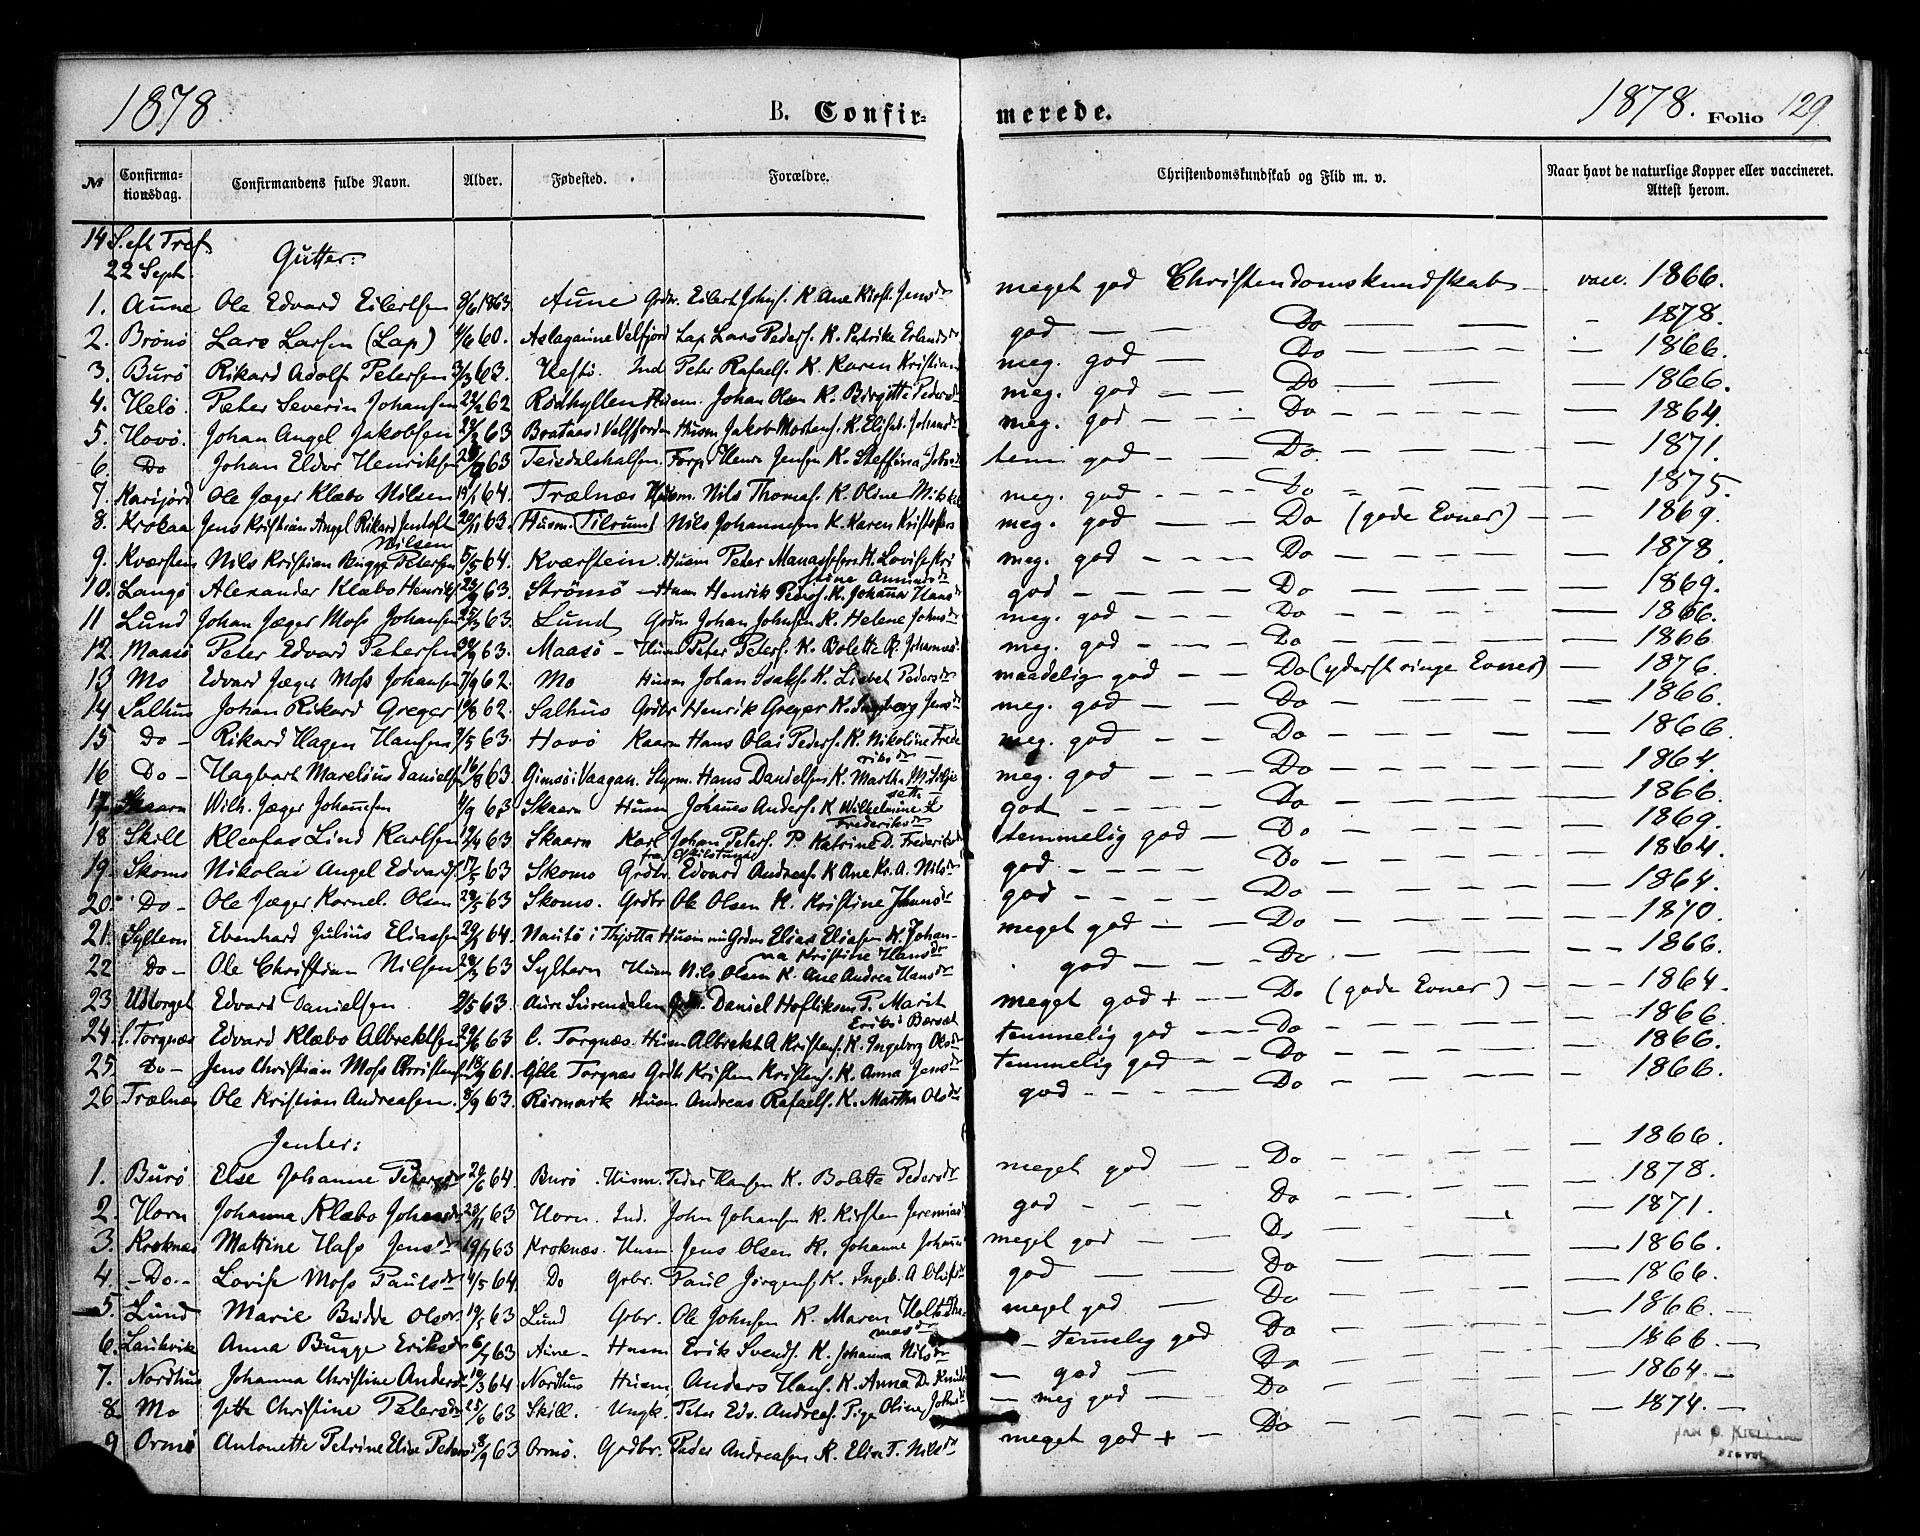 1878. B. Confirmerede. 1878. Folio 129
№ Confirmationsdag. Confirmandens fulde Navn. Alder. Fødested. Forældre. Christendomskundskab og Flid m. v. Naar havt de naturlige Kopper eller vaccineret. Attest herom.
14 S. eft Tref.
22 Sept. Gutter:
1. Aune Ole Edvard Eilertsen 8/6 1863. Aune Grdbr. Eilert Johns. K. Ane Kirst. Jensdr meget god Christendomskundskab — vacc. 1866.
2. Brönö Lars Larsen (Lap) 1/6 60. Aslagaune Velfjord Lap Lars Peders. K. Petrike Erlandsdr god — — Do — — — 1878.
3. Burö Rikard Adolf Petersen 3/3 63. Hestö. Ind Peter Rafaels. K. Karen Kristian meg. god — — Do — — — 1866.
4. Helö. Peter Severin Johansen 22/2 62 Rödhyllen Husm. Johan Olsen K. Birgitte Pedersdr meg. god — — Do — — — 1866.
5. Hovö. Johan Angel Jakobsen 23/2 63 Bratnas i Velfjorden Husm Jakob Mortens. K. Elisab. Johansdr meg. god — — Do — — — 1864.
6. Do Johan Eldor Henriksen 63 Teisdalshalsen. Forp. Henr. Jensen K. Steffina Johsdr tem god — — Do — — — 1871.
7. Karijord Ole Jæger Klæbo Nilsen 19/1 64. Trælnæs Husm. Nils Thomas. K. Oline Mikkel meg. god — — Do — — — 1875.
8. Krokaa Jens Kristian Angel Rikard Jentoft Nilsen 20/11 63. Husm. Tilrum Nils Johannesen K. Karen Kristoffers meg. god — — Do (gode Evner) — — 1869.
9. Kværstein Nils Kristian Bugge Petersen 5/5 64. Kværstein. Husm Peter Manassesen K. Lovise Kristine Amundsdr meg. god — — Do — — — 1878.
10. Langö Alexander Klæbo Henriks. 23/9 63. Strömö — Husm Henrik Peders. K. Johanna Hansdr god — — Do — — — 1869.
11 Lund Johan Jæger Moss Johansen 25/3 63. Lund Grdm Johan Johnsen K. Helene Johnsdr meg. god — — Do — — — 1866.
12. Maasö Peter Edvard Petersen 30/9 63. Maasö — Husm Peter Peters. K. Bolette R. Johannes. meg. god — — Do — — — 1866
13 Mo Edvard Jæger Moss Johansen 7/9 62. Mo Husm Johan Isaks. K. Lisbet Pedersdr maadelig god — Do (yderst ringe Evner) — 1876.
14 Salhus Johan Rikard Greger 10/8 62. Salhus Grdbr Henrik Greger K. Ingeborg Jensdr meg. god — — Do — — — 1866.
15 Do — Rikard Hagen Hansen 9/5 63. Hovö Kaarm Hans Olai Peders. K. Nikoline Frederiksdr meg. god — — Do — — — 1866.
16 Do — Hagbart Marelius Danielsen 16/8 63. Gimsöi Vaagan. Styrm. Hans Danielsen K. Martha M. meg. god — — Do — — — 1864.
17 Skaarn Wilh. Jæger Johannesen 1/9 63 Skaarn Husm Johannes Anders. K Wilhelmine L. Frederiksdr god — — Do — — — 1866.
18 Skill Kleofas Lind Karlsen 19/4 63 Skaarn Karl Johan Peters. P. Katrine D. Frederiksdr temmelig god — Do — — — 1869.
19. Skoms Nikolai Angel Edvards. 17/5 63 Skoms Grdbr. Edvard Andreas. K Ane Kr. A. Nilsdr god — — Do — — — 1864.
20. Do — Ole Jæger Kornel. Olsen 29/5 63 Skoms. Grdbr Ole Olsen K. Kristine Jensdr god — — Do — — — 1864.
21. Syltern Ebenhard Julius Eliassen 29/2 64. Nautö i Thjötta Husm nu Grdm Elias Eliasen K. Johanna Kristine Hansdr meget god — — Do — — — 1870.
22 Do — Ole Christian Nilsen 28/3 63 Syltern Husm Nils Olsen K. Ane Andrea Hansdr god — — Do — — — 1866.
23 Udtorget Edvard Danielsen 2/5 63. Aure Surendalen Daniel P. Marit Eriks. meget god + — Do (gode Evner) — — 1864.
24 l. Torgnæs Edvard Klæbo Albrektsen 29/6 63 l. Torgnæs. Husm Albrekt A Kristens. K. Ingeborg Olsdr temmelig god — Do — — — 1866.
25. — Do — Jens Christian Moss Christens. 18/9 61. Torgnæs Grdbr Kristen Kristens. K. Anna Jensdr temmelig god — Do — — — 1866.
26 Trælnæs Ole Kristian Andreassen. 8/9 63. Rörmark Husm Andreas Rafaels. K. Martha Olsdr god — — Do — — — 1866.
Jenter:
1. Burö Else Johanne Petersdr 29/6 64. Burö. Husm. Peder Hansen K. Bolette Pedersdr meget god — — Do — — — 1866.
2. Horn Johanna Klæbo Johansdr 23/11 63 Horn. Ind. John Johansen K. Kirsten Jeremias god — — Do — — — 1878.
3. Kroknæs Mattine Hass Jensdr 19/7 63 Kroknæs. Husm. Jens Olsen K. Johanne Johan meget god — — Do — — — 1871.
4. — Do. — Lovise Moss Paulsdr 4/5 64. Do Grbr. Paul Jörgens. K. Ingeb. A god — — Do — — — 1866.
5. Lund Marie Budde Olsdr. 19/5 63 Lund Grbr. Ole Johnsen K. Maren meget god — — Do — — — 1866.
6. Laukvik Anna Bugge Eriksdr 6/7 63 Aune — Husm Erik Svends. K. Johanna Nilsdr — temelig god Do — — — 1866. —
7. Nordhus Johanna Christine Andersdr 10/3 64 Nordhus Husm. Anders Hans. K. Anna D. — god — Do — — — 1866. —
8. Mo Jette Christine Petersdr 25/6 63 Skill. Ungk. Peter Edv. Andreas. Pige Oline Johns — meg god — Do — — — 1864. —
9 Ormö Antonette Petrine Elise Peters 8/9 63 Ormö. Grdbr. Peder Andreasen K. Elise T. Nilsdr meget god + — Do — — — 1874. —